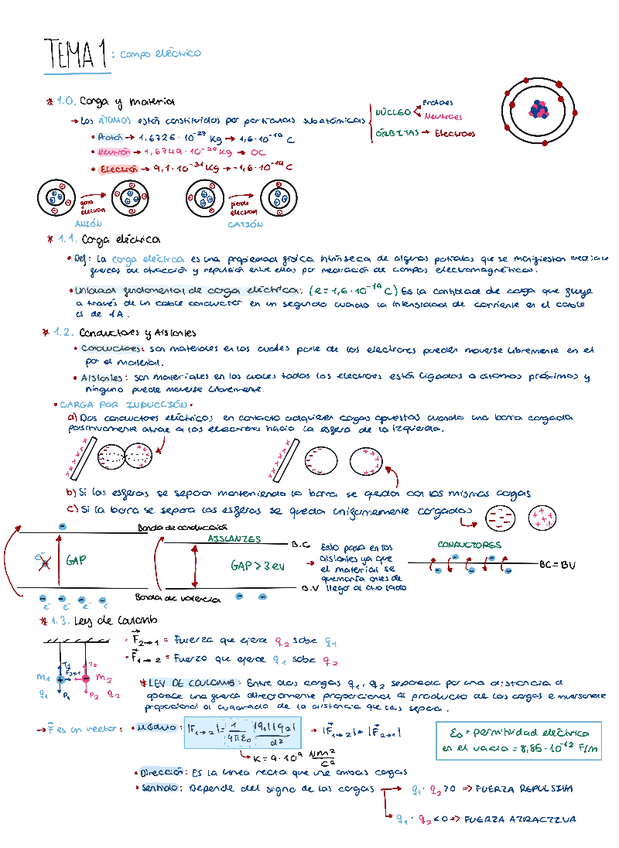 TEMA 1: Campo eléctrico
* 1.0. Carga y materia
→ Los ÁTOMOS están constituidos por partículas subatómicas
NÚCLEO
Protones
Neutrones
ÓRBITAS → Electrones
• Protón → 1,6726·10⁻²⁷ Kg → 1,6·10⁻¹⁹ C
• Neutrón → 1,6749·10⁻²⁷ Kg → 0C
• Electrón → 9,1·10⁻³¹ Kg → -1,6·10⁻¹⁹ C
gana electrón
pierde electrón
ANIÓN
CATIÓN
* 1.1. Carga eléctrica
• Def: La carga eléctrica es una propiedad física intrínseca de algunas partículas que se manifiestan mediante
fuerzas de atracción y repulsión entre ellas por mediación de campos electromagnéticos.
• Unidad fundamental de carga eléctrica: (e = 1,6·10⁻¹⁹ C) Es la cantidad de carga que fluye
a través de un cable conductor en un segundo cuando la intensidad de corriente en el cable
es de 1A.
* 1.2. Conductores y Aislantes
• Conductores: son materiales en los cuales parte de los electrones pueden moverse libremente en el
por el material.
• Aislantes: son materiales en los cuales todos los electrones están ligados a átomos próximos y
ninguno puede moverse libremente.
• CARGA POR INDUCCIÓN •
a) Dos conductores eléctricos en contacto adquieren cargas opuestas cuando una barra cargada
positivamente atrae a los electrones hacia la esfera de la izquierda.
b) Si las esferas se separan manteniendo la barra se quedan con las mismas cargas
c) Si la barra se separa las esferas se quedan uniformemente cargadas
Banda de conducción
GAP
Banda de valencia
AISLANTES
B.C
GAP > 3 eV
B.V
Esto pasa en los
aislantes ya que
el material se
quemaría antes de
llegar al otro lado
CONDUCTORES
BC = BV
* 1.3. Ley de Coulomb
m₁
q₁
m₂
q₂
P₁
P₂
• F⃗₂→₁ = Fuerza que ejerce q₂ sobre q₁
• F⃗₁→₂ = Fuerza que ejerce q₁ sobre q₂
* LEY DE COULOMB: Entre dos cargas q₁, q₂ separadas por una distancia d
aparece una fuerza directamente proporcional al producto de las cargas e inversamente
proporcional al cuadrado de la distancia que las separa.
→ F⃗ es un vector: • Módulo: |F⃗₁→₂| = 1/4πε₀ |q₁||q₂|/d² → |F⃗₁→₂| = |F⃗₂→₁|
K = 9·10⁹ Nm²/C²
ε₀ = permitividad eléctrica
en el vacío = 8,85·10⁻¹² F/m
• Dirección: Es la línea recta que une ambas cargas
• Sentido: Depende del signo de las cargas → q₁·q₂ > 0 => FUERZA REPULSIVA
q₁·q₂ < 0 => FUERZA ATRACTIVA